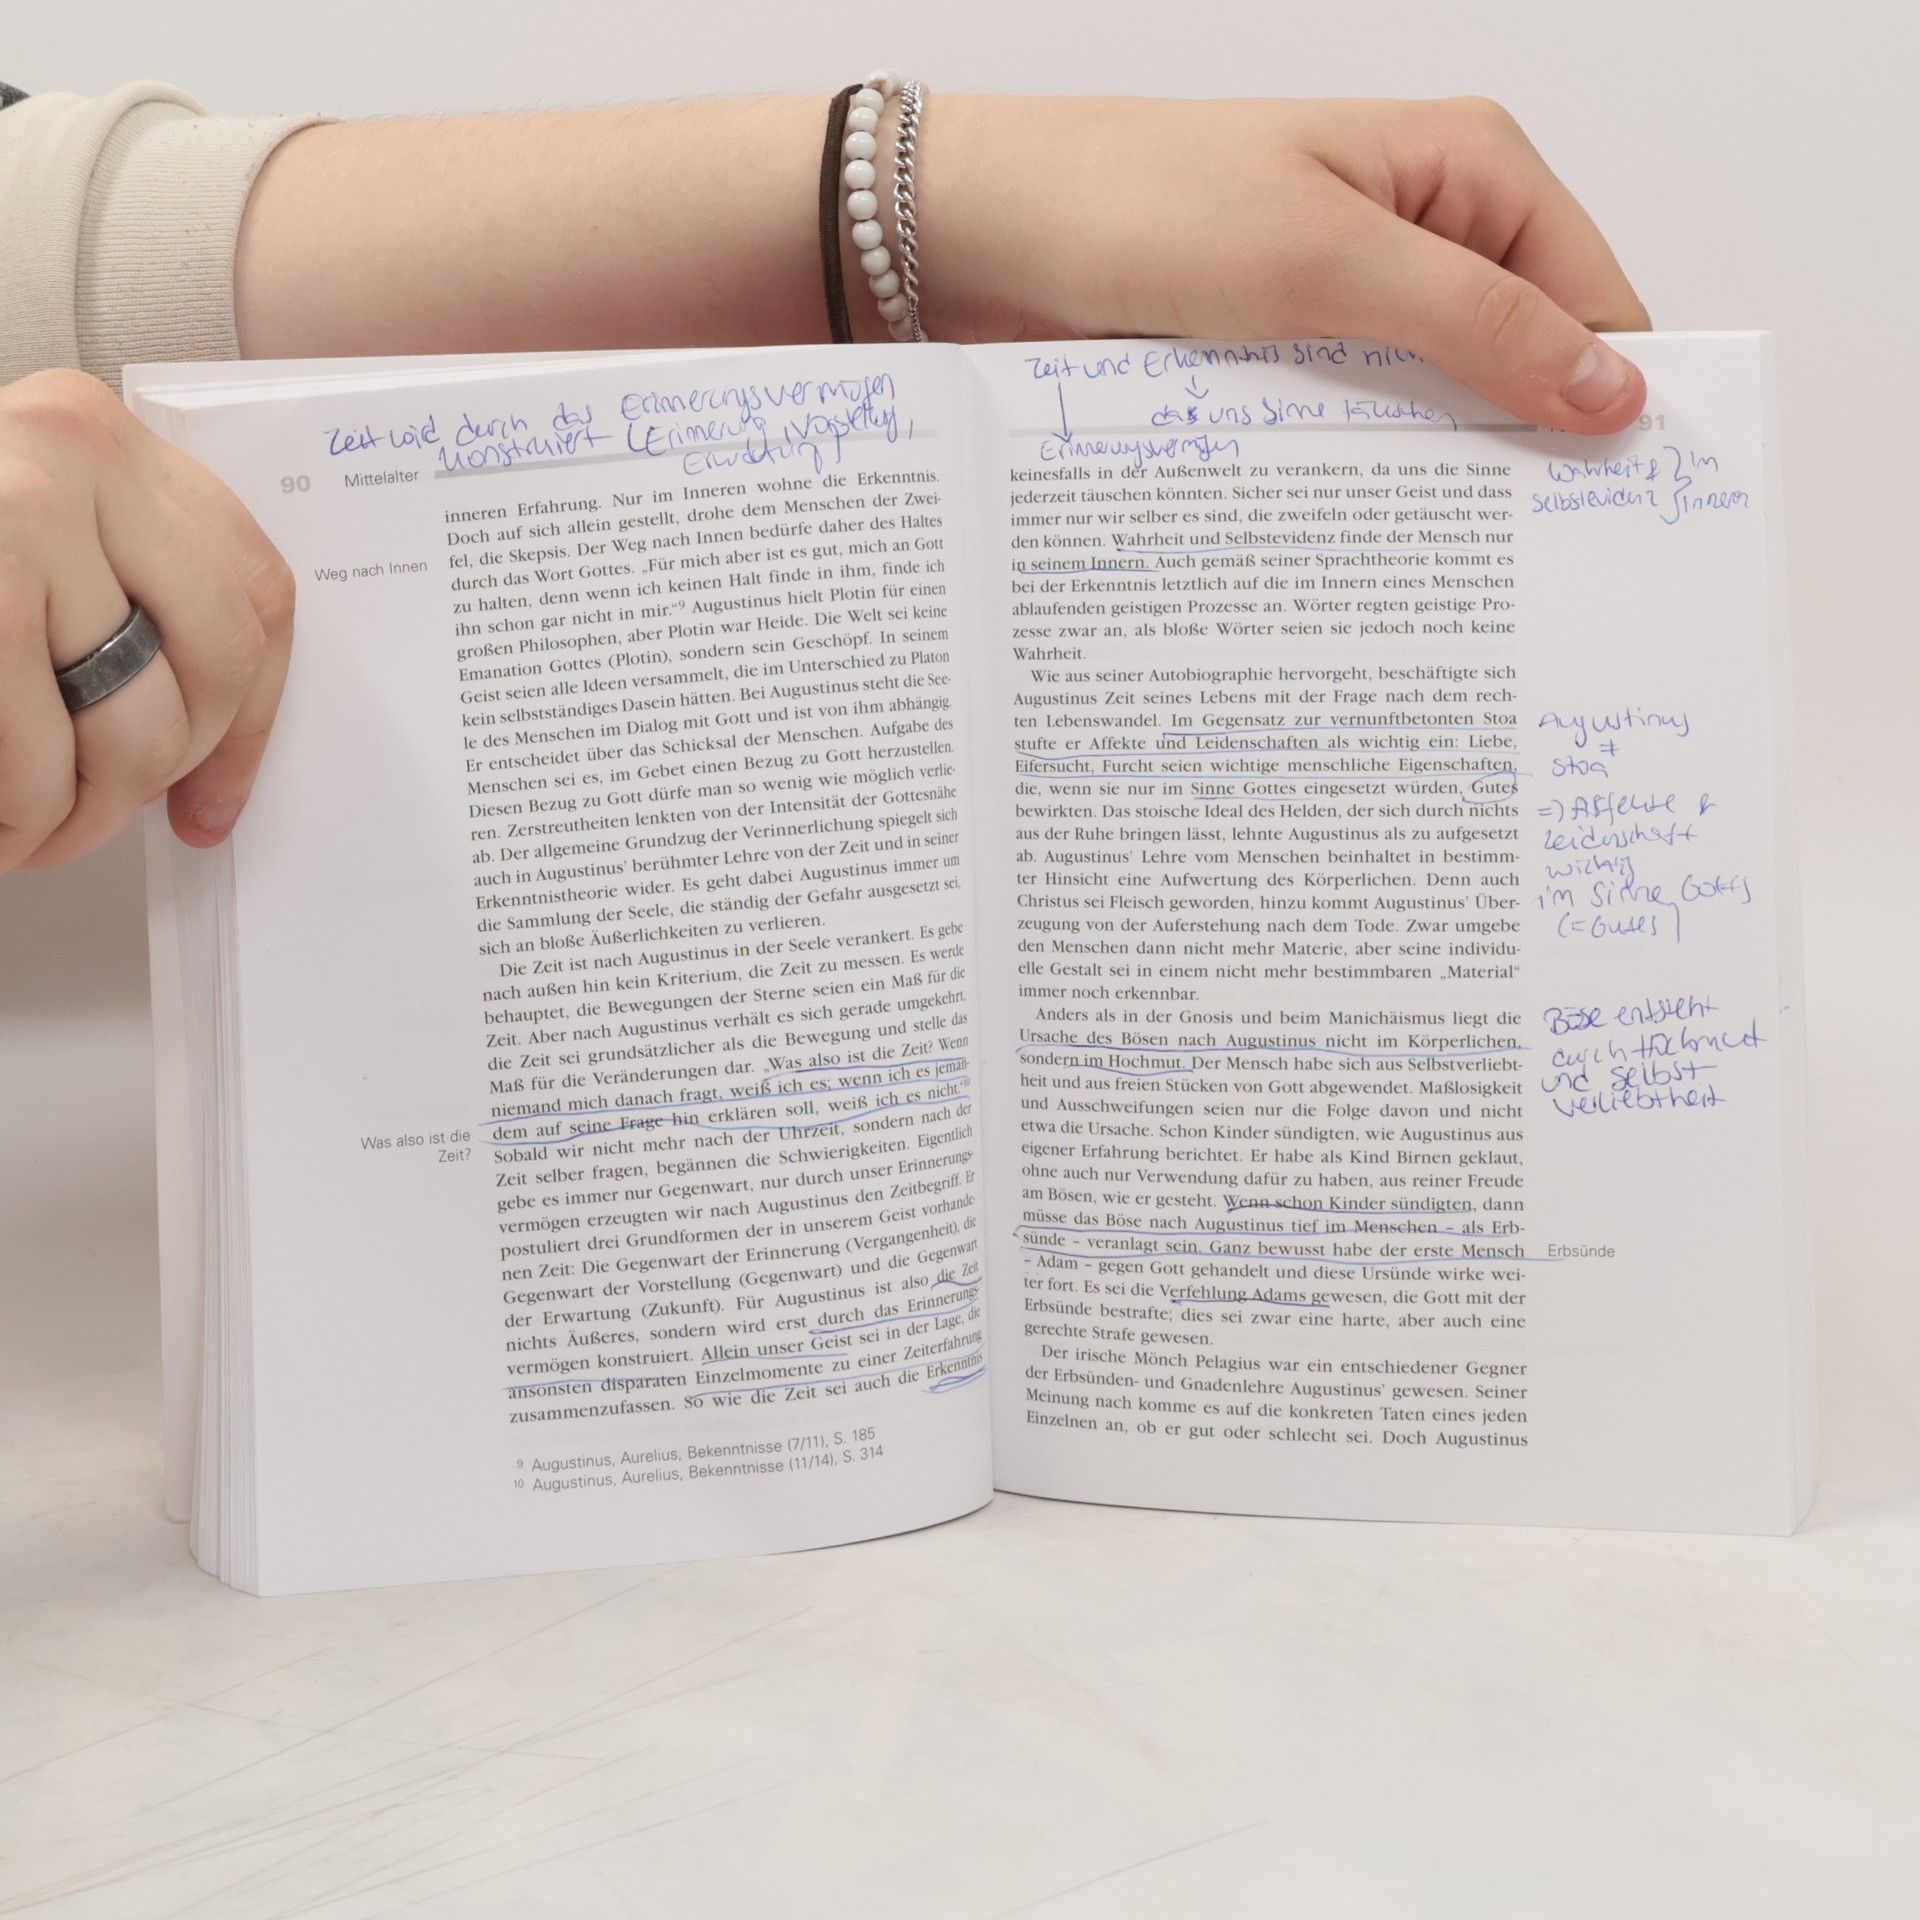 Zeit wird durch das Erinnerungsvermögen
konstruiert (Erinnerung, Vorstellung,
Erwartung)
90 Mittelalter
inneren Erfahrung. Nur im Inneren wohne die Erkenntnis.
Doch auf sich allein gestellt, drohe dem Menschen der Zwei-
fel, die Skepsis. Der Weg nach Innen bedürfe daher des Haltes
Weg nach Innen
durch das Wort Gottes. „Für mich aber ist es gut, mich an Gott
zu halten, denn wenn ich keinen Halt finde in ihm, finde ich
ihn schon gar nicht in mir.“9 Augustinus hielt Plotin für einen
großen Philosophen, aber Plotin war Heide. Die Welt sei keine
Emanation Gottes (Plotin), sondern sein Geschöpf. In seinem
Geist seien alle Ideen versammelt, die im Unterschied zu Platon
kein selbstständiges Dasein hätten. Bei Augustinus steht die See-
le des Menschen im Dialog mit Gott und ist von ihm abhängig.
Er entscheidet über das Schicksal der Menschen. Aufgabe des
Menschen sei es, im Gebet einen Bezug zu Gott herzustellen.
Diesen Bezug zu Gott dürfe man so wenig wie möglich verlie-
ren. Zerstreutheiten lenkten von der Intensität der Gottesnähe
ab. Der allgemeine Grundzug der Verinnerlichung spiegelt sich
auch in Augustinus’ berühmter Lehre von der Zeit und in seiner
Erkenntnistheorie wider. Es geht dabei Augustinus immer um
die Sammlung der Seele, die ständig der Gefahr ausgesetzt sei,
sich an bloße Äußerlichkeiten zu verlieren.
Die Zeit ist nach Augustinus in der Seele verankert. Es gebe
nach außen hin kein Kriterium, die Zeit zu messen. Es werde
behauptet, die Bewegungen der Sterne seien ein Maß für die
Zeit. Aber nach Augustinus verhält es sich gerade umgekehrt,
die Zeit sei grundsätzlicher als die Bewegung und stelle das
Maß für die Veränderungen dar. „Was also ist die Zeit? Wenn
niemand mich danach fragt, weiß ich es; wenn ich es jeman-
dem auf seine Frage hin erklären soll, weiß ich es nicht.“10
Was also ist die
Zeit?
Sobald wir nicht mehr nach der Uhrzeit, sondern nach der
Zeit selber fragen, begännen die Schwierigkeiten. Eigentlich
gebe es immer nur Gegenwart, nur durch unser Erinnerungs-
vermögen erzeugten wir nach Augustinus den Zeitbegriff. Er
postuliert drei Grundformen der in unserem Geist vorhande-
nen Zeit: Die Gegenwart der Erinnerung (Vergangenheit), die
Gegenwart der Vorstellung (Gegenwart) und die Gegenwart
der Erwartung (Zukunft). Für Augustinus ist also die Zeit
nichts Äußeres, sondern wird erst durch das Erinnerungs-
vermögen konstruiert. Allein unser Geist sei in der Lage, die
ansonsten disparaten Einzelmomente zu einer Zeiterfahrung
zusammenzufassen. So wie die Zeit sei auch die Erkenntnis
9 Augustinus, Aurelius, Bekenntnisse (7/11), S. 185
10 Augustinus, Aurelius, Bekenntnisse (11/14), S. 314
Zeit und Erkenntnis sind
uns Sinne täuschen
Erinnerungsvermögen
91
keinesfalls in der Außenwelt zu verankern, da uns die Sinne
jederzeit täuschen könnten. Sicher sei nur unser Geist und dass
immer nur wir selber es sind, die zweifeln oder getäuscht wer-
den können. Wahrheit und Selbstevidenz finde der Mensch nur
in seinem Innern. Auch gemäß seiner Sprachtheorie kommt es
bei der Erkenntnis letztlich auf die im Innern eines Menschen
ablaufenden geistigen Prozesse an. Wörter regten geistige Pro-
zesse zwar an, als bloße Wörter seien sie jedoch noch keine
Wahrheit.
Wahrheit & } im
Selbstevidenz } Innern
Wie aus seiner Autobiographie hervorgeht, beschäftigte sich
Augustinus Zeit seines Lebens mit der Frage nach dem rech-
ten Lebenswandel. Im Gegensatz zur vernunftbetonten Stoa
stufte er Affekte und Leidenschaften als wichtig ein: Liebe,
Eifersucht, Furcht seien wichtige menschliche Eigenschaften,
die, wenn sie nur im Sinne Gottes eingesetzt würden, Gutes
bewirkten. Das stoische Ideal des Helden, der sich durch nichts
aus der Ruhe bringen lässt, lehnte Augustinus als zu aufgesetzt
ab. Augustinus’ Lehre vom Menschen beinhaltet in bestimm-
ter Hinsicht eine Aufwertung des Körperlichen. Denn auch
Christus sei Fleisch geworden, hinzu kommt Augustinus’ Über-
zeugung von der Auferstehung nach dem Tode. Zwar umgebe
den Menschen dann nicht mehr Materie, aber seine individu-
elle Gestalt sei in einem nicht mehr bestimmbaren „Material“
immer noch erkennbar.
Augustinus
≠
Stoa
=> Affekte &
Leidenschaft
wichtig
im Sinne Gottes
(=Gutes)
Anders als in der Gnosis und beim Manichäismus liegt die
Ursache des Bösen nach Augustinus nicht im Körperlichen,
sondern im Hochmut. Der Mensch habe sich aus Selbstverliebt-
heit und aus freien Stücken von Gott abgewendet. Maßlosigkeit
und Ausschweifungen seien nur die Folge davon und nicht
etwa die Ursache. Schon Kinder sündigten, wie Augustinus aus
eigener Erfahrung berichtet. Er habe als Kind Birnen geklaut,
ohne auch nur Verwendung dafür zu haben, aus reiner Freude
am Bösen, wie er gesteht. Wenn schon Kinder sündigten, dann
müsse das Böse nach Augustinus tief im Menschen – als Erb-
sünde – veranlagt sein. Ganz bewusst habe der erste Mensch
– Adam – gegen Gott gehandelt und diese Ursünde wirke wei-
ter fort. Es sei die Verfehlung Adams gewesen, die Gott mit der
Erbsünde bestrafte; dies sei zwar eine harte, aber auch eine
gerechte Strafe gewesen.
Böse entsteht
durch Hochmut
und Selbst-
verliebtheit
Erbsünde
Der irische Mönch Pelagius war ein entschiedener Gegner
der Erbsünden- und Gnadenlehre Augustinus’ gewesen. Seiner
Meinung nach komme es auf die konkreten Taten eines jeden
Einzelnen an, ob er gut oder schlecht sei. Doch Augustinus